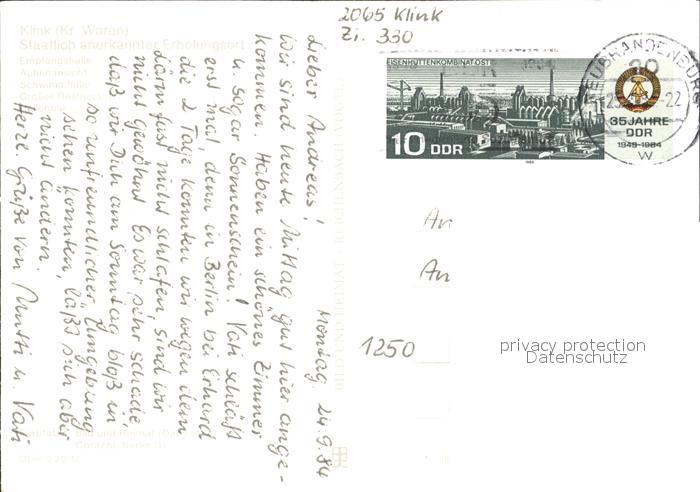 Klink (Kr. Waren)
Staatlich anerkannter Erholungsort
Empfangshalle
Außenansicht
Schwimmhalle
2065 Klink
Zi. 330
EISENHÜTTENKOMBINAT OST
10 DDR
35 JAHRE
DDR
1949-1984
NEUBRANDENBURG
20
-22
W
Montag, 24.9.84
Lieber Andreas!
Wir sind heute Mittag gut hier ange-
kommen. Haben ein schönes Zimmer
u. sogar Sonnenschein! Vati schläft
erst mal, denn in Berlin bei Erhard
die 2 Tage konnten wir wegen dem
Lärm fast nicht schlafen, sind wir
nicht gewöhnt. Es war sehr schade,
daß wir Dich am Sonntag bloß in
so unfreundlicher Umgebung
sehen konnten, läßt sich aber
nicht ändern.
Herzl. Grüße von Mutti u. Vati
An
An
1250
privacy protection
Datenschutz